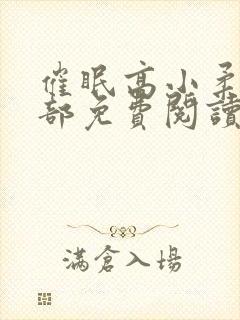 催眠高小柔
部免費閱讀
滿倉入場